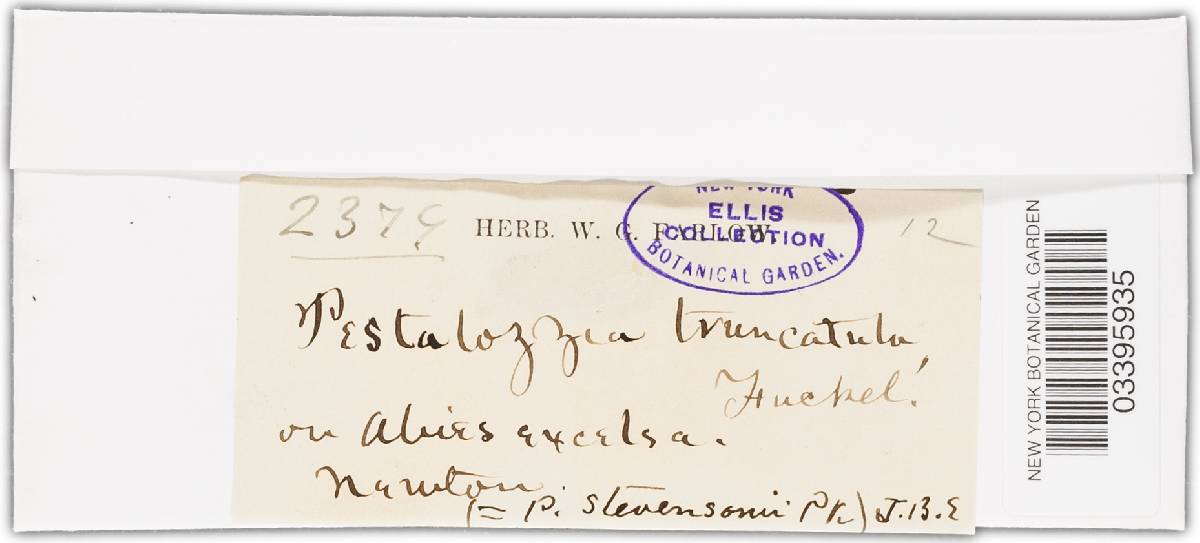 2379
HERB. W. G. FARLOW.
NEW YORK
ELLIS
COLLECTION
BOTANICAL GARDEN.
12
Pestalozzia truncatula,
Fuckel!
on Abies excelsa.
Newton.
(= P. Stevensonii Pk) J.B.E
NEW YORK BOTANICAL GARDEN
03395935